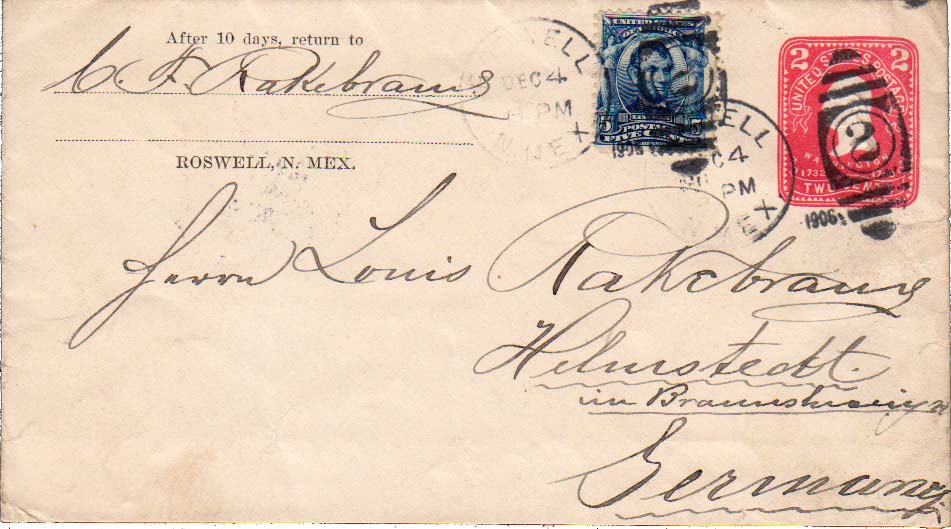 After 10 days, return to
C. F. Rakebrand
ROSWELL, N. MEX.
ELL
DEC 4
PM
N. MEX
1906
UNITED STATES
OF AMERICA
5 5
POSTAGE
FIVE CENTS
WELL
DEC 4
PM
1906
2 2
UNITED STATES POSTAGE
WASHINGTON
1732
TWO CENTS
2
Herrn Louis Rakebrand
Helmstedt.
in Braunschweig
Germany.